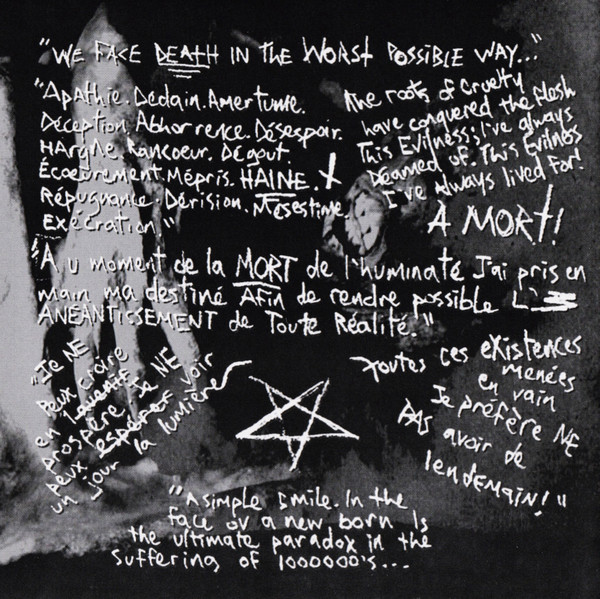 "WE FACE DEATH IN THE WORST POSSIBLE WAY..."
"Apathie. Dedain. Amertume.
Déception. Abhorrence. Désespoir.
HArgNe. Rancoeur. Dégout.
Écoeurement. Mépris. HAINE.
Répugnance. Dérision. Mésestime.
EXÉCRATION."
The roots of cruelty
have conquered the flesh
This Evilness; I've always
Deamed of. This Evilness
I've always lived for!
A MORT!
"Au moment de la MORT de l'humanité J'ai pris en
main ma destiné Afin de rendre possible L'
ANÉANTISSEMENT de Toute Réalité."
"Je NE
Peux croire
en l'aventir
prospère Je NE
peux espérer voir
un jour la lumière
Toutes ces existences
menées
en vain
Je préfère NE
PAS avoir de
lendemain!"
"A simple smile. In the
face ov a new born Is
the ultimate paradox in the
suffering of 1000000's...